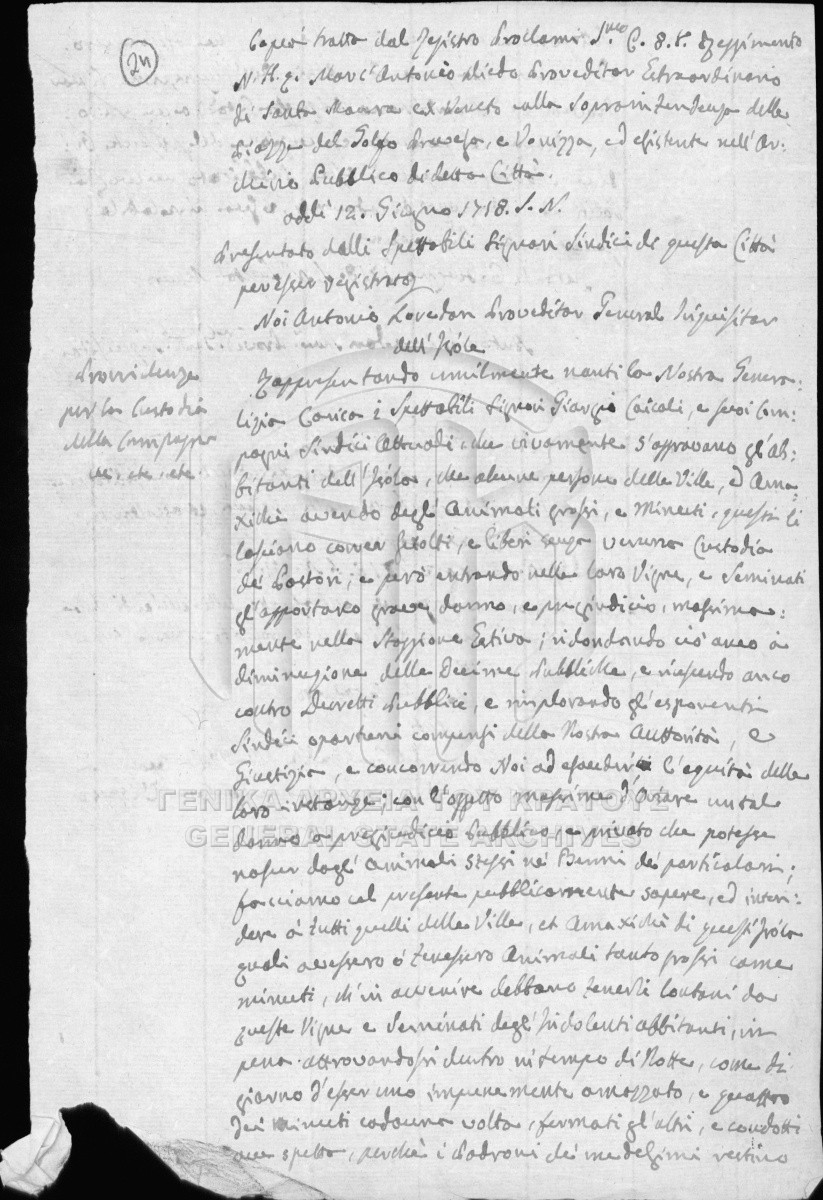 24
Copia tratta dal Registro Proclami
N. H. q. Marc'Antonio Diedo Proveditor Estraordinario
di Santa Maura ex Veneto colla Sopraintendenza delle
Piazze del Golfo Prevesa, e Vonizza, ed esistente nell'Ar-
chivio Pubblico di detta Città.
addi 12. Giugno 1718. S. N.
Presentato dalli Spettabili Signori Sindici de questa Città
per esser registrato
Noi Antonio Loredan Proveditor General Inquisitor
dell'Isole
Providenze
per la Custodia
della Campagna
etc. etc. etc.
Rappresentando umilmente nanti la Nostra Genera:
lizia Carica i Spettabili Signori Giorgio Caicali, e suoi Com:
pagni Sindici Attuali che vivamente s'aggravano gl'Ab:
bitanti dell'Isola, che alcune persone delle Ville, ed Ama
xichi avendo degl'Animali grossi, e Minuti, questi li
lasciano correr sciolti, e liberi senza veruna Custodia
de Pastori, e però entrando nelle loro Vigne, e Seminati
gl'apportano grave danno, e pregiudicio, massima:
mente nella Staggione Estiva; ridondando ciò anco à
diminuzione delle Decime Pubbliche, e riescendo anco
contro Decretti Pubblici, e implorando gl'esponenti
Sindici opportuni compensi della Nostra Auttorità, e
Giustizia, e concorrendo Noi ad esaudir l'equità delle
loro instanze; con l'oggetto massime d'oviare un tal
danno e pregiudicio Pubblico, e privato che potesse
nascer dagl'Animali stessi ne Benni de particolari;
facciamo col presente pubblicamente sapere, ed inten:
dere à tutti quelli delle Ville, et Amaxichi di quest'Isola
quali avessero ò tenessero Animali tanto grossi come
minuti, ch'in avvenire debbano tenerli lontani da
queste Vigne e Seminati degl'Indolenti abbitanti, in
pena attrovandosi dentro in tempo di Notte, come di
giorno d'esser uno impunemente amazzato, e quattro
dei Minuti cadauna volta, fermati gl'altri, e condotti
ove spetta, perchè i Padroni dei medesimi restino
ΓΕΝΙΚΑ ΑΡΧΕΙΑ ΤΟΥ ΚΡΑΤΟΥΣ
GENERAL STATE ARCHIVES